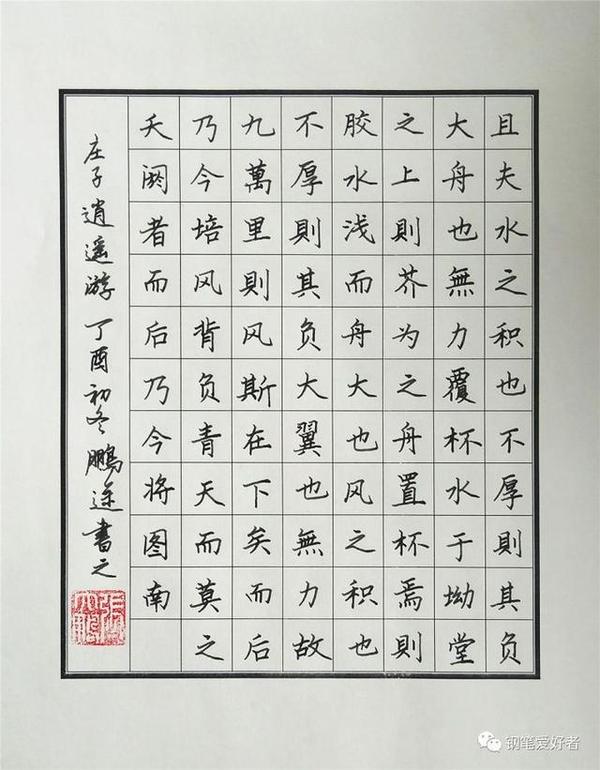 且夫水之积也不厚則其负
大舟也無力覆杯水于坳堂
之上則芥为之舟置杯焉則
胶水浅而舟大也风之积也
不厚則其负大翼也無力故
九萬里則风斯在下矣而后
乃今培风背负青天而莫之
夭阏者而后乃今将图南
庄子逍遥游丁酉初冬鹏途書之
钢笔爱好者